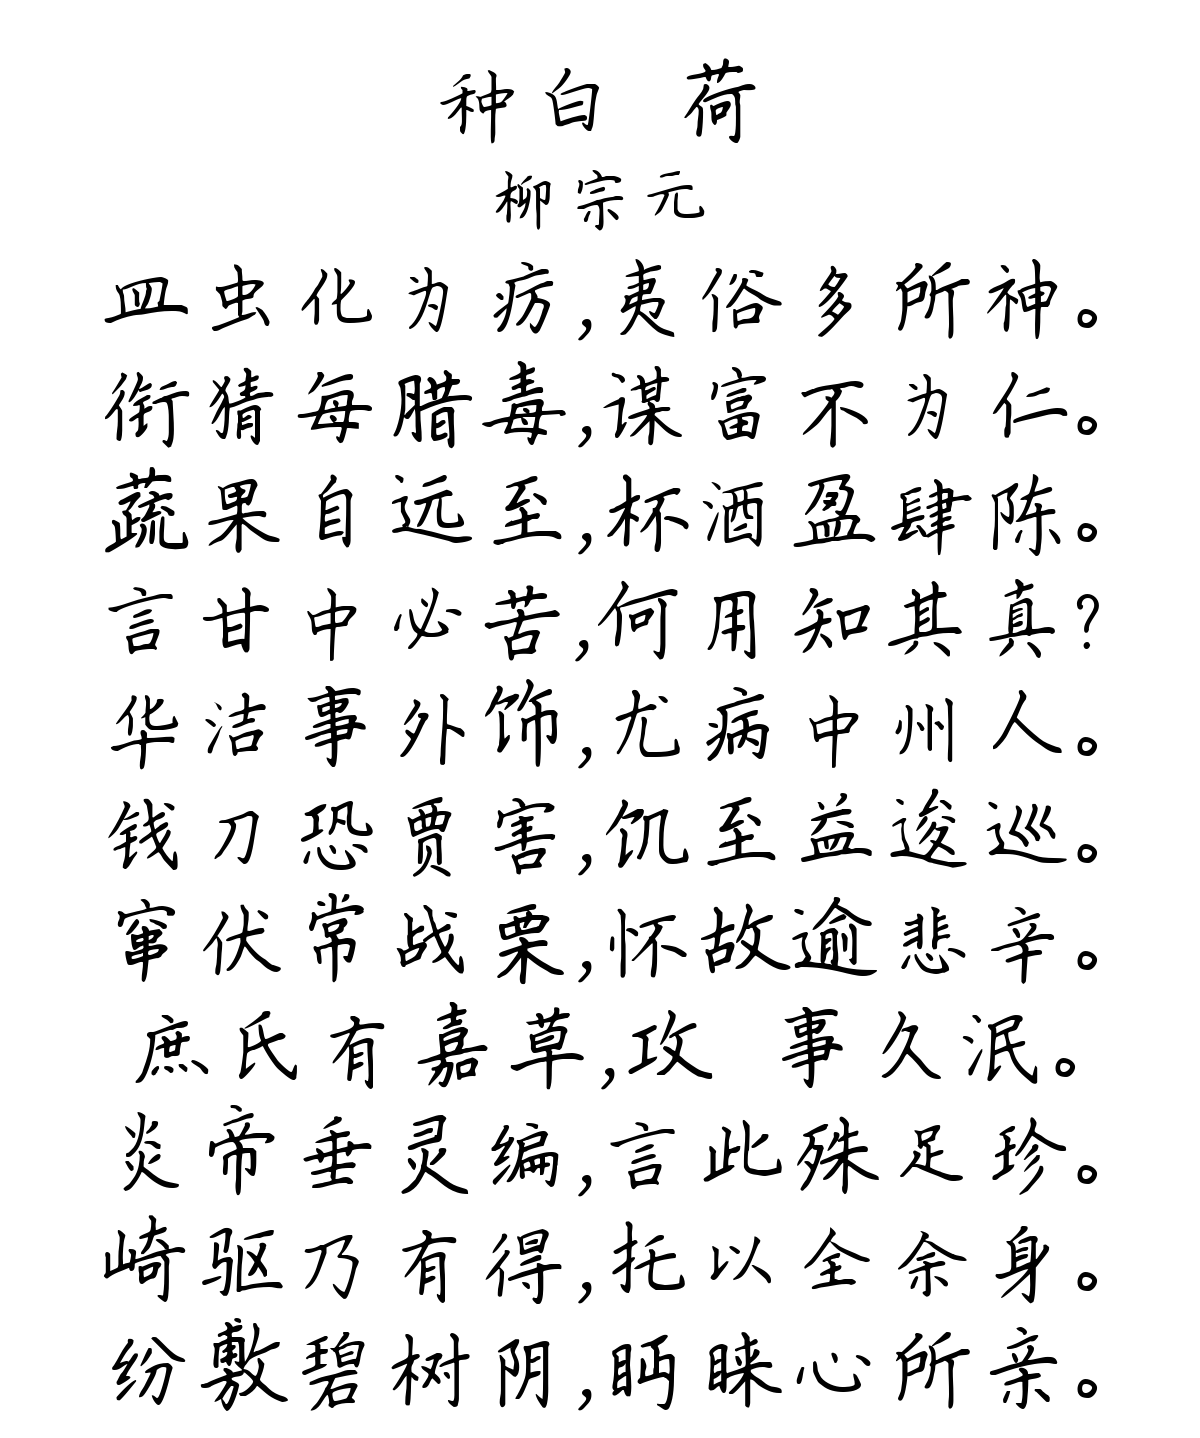 种白 荷
柳宗元
皿虫化为疠,夷俗多所神。
衔猜每腊毒,谋富不为仁。
蔬果自远至,杯酒盈肆陈。
言甘中必苦,何用知其真?
华洁事外饰,尤病中州人。
钱刀恐贾害,饥至益逡巡。
窜伏常战栗,怀故逾悲辛。
庶氏有嘉草,攻 事久泯。
炎帝垂灵编,言此殊足珍。
崎驱乃有得,托以全余身。
纷敷碧树阴,眄睐心所亲。